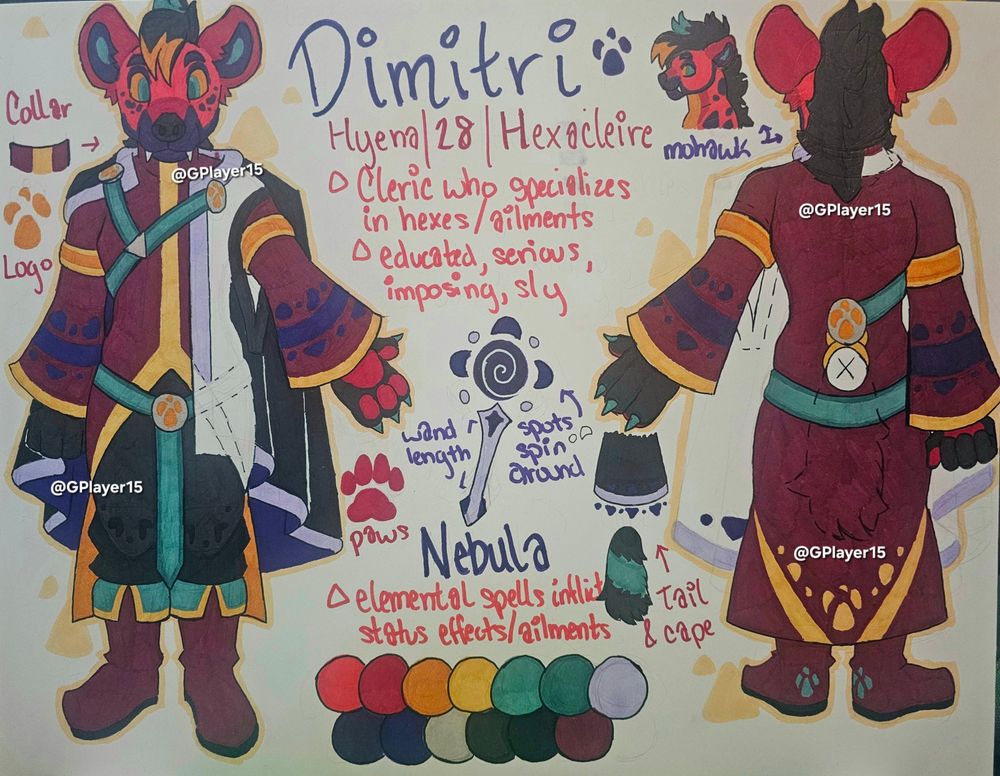 Dimitri
Hyena/28/Hexacleire
Cleric who specializes
in hexes/ailments
educated, serious,
imposing, sly
Collar
Logo
mohawk
@GPlayer15
@GPlayer15
@GPlayer15
@GPlayer15
wand
length
spots
spin
around
X
paws
Nebula
elemental spells inflict
status effects/ailments
Tail
& cape